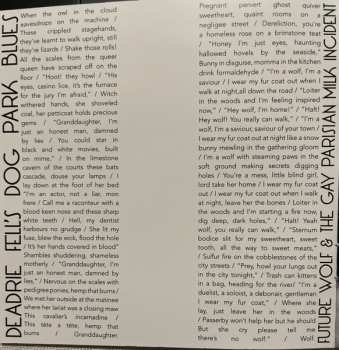 DEADRIE FELL'S DOG PARK BLUES
When the owl in the cloud
eavesdrops on the machine /
Those crippled stagehands,
they've learnt to walk upright, still
they're lizards / Shake those rolls!
All the scales from the queer
queen have scraped off on the
floor / "Hoot! they howl / "His
eyes, casino lice, it's the furnace
for the jury I'm afraid." / Witch
withered hands, she shoveled
coal, her petticoat holds precious
gems / "Granddaughter, I'm
just an honest man, damned
by lies / You could star in
black and white movies, built
on mime," / In the limestone
cavern of the courts these bats
cascade, douse your lamps / I
lay down at the foot of her bed
"I'm an actor, not a liar, mon
frere / Call me a raconteur with a
blood keen nose and these sharp
white teeth / Hell, my dentist
harbours no grudge / She lit my
fuse, blew the wick, flood the hole
/ It's her hands covered in blood"
Shambles shuddering, shameless
motherly / "Granddaughter, I'm
just an honest man, damned by
lies," / Nervous on the scales with
pedigree ponies, hemp that burns /
We met her outside at the matinee
where her talat was a closing maw
This cavalier's incarnadine /
This tête a tête, hemp that
burns / Granddaughter.
FUTURE WOLF & THE GAY PARISTAN MILK INCIDENT
Pregnant pervert ghost quiver
sweetheart, quaint rooms on a
negligee street / Dereliction, you're
a homeless rose on a brimstone teat
/ "Honey I'm just eyes, haunting
hallowed hovels by the seaside,"
Bunny in disguise, momma in the kitchen
drink formaldehyde / "I'm a wolf, I'm a
saviour / I wear my fur coat out when I
walk at night,all down the road / "Loiter
in the woods and I'm feeling inspired
now," / "Hey wolf, I'm home!" / "Halt!
Hey wolf! You really can walk," / "I'm a
wolf, I'm a saviour, saviour of your town I
I wear my fur coat out at night like a snow
bunny mewling in the gathering gloom
/ I'm a wolf with steaming paws in the
soft ground making secrets digging
holes / You're a mess, little blind girl,
lord take her home / I wear my fur coat
out / I wear my fur coat out when I walk
at night, leave her bones / Loiter in
the woods and I'm starting a fire now,
dig deep, dark holes," / "Halt! Yeah
wolf, you really can walk," / "Sternum
bodice slit for my sweetheart, sweet
tooth, all the way to sweet meats,"
/ Sulfur fire on the cobblestones of the
city streets / "Prey, howl your lungs out
in the city tonight," / Trash can kittens
in a bag, heading for the river/ "I'm a
duelist, a soloist, a debonair, gentleman
I wear my fur coat," / Where she
lay, just leave her in the woods
/ Passerby won't help her but he should
But she cry please tell me
there's no wolf." / Wolf.